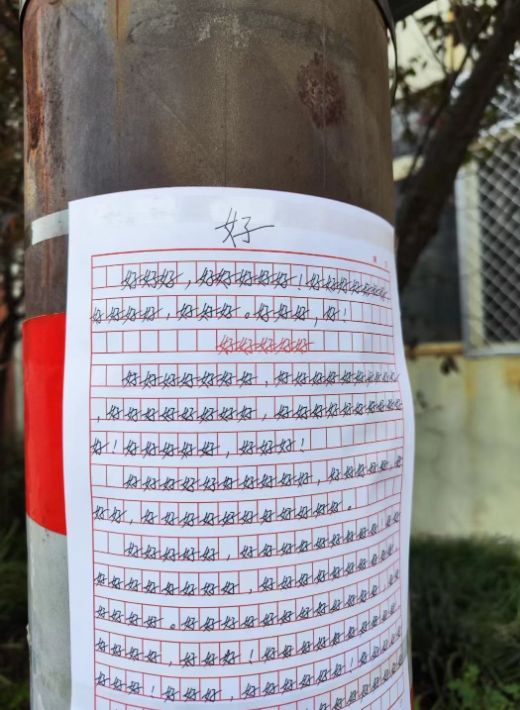 好
好好好，好好好好好！好好好好好好
好好好好，好好好。好好好，好！
好好好好好
好好好好好好好，好好好好好好好好
，好好好好好好好好，好好好好好好好好
好！好好好好好，好好好！
好好好好好好好好好好，好好好好，好
好好，好好好好好好好好好好好。
好好好好好，好好好好好好好好，好
好好好好好好好好，好好好好好好好好
好好好好。好好好好好好好好好好，好
好好好好，好好好！好好好好好好好好
好好！好好好，好好好好好好！好好好